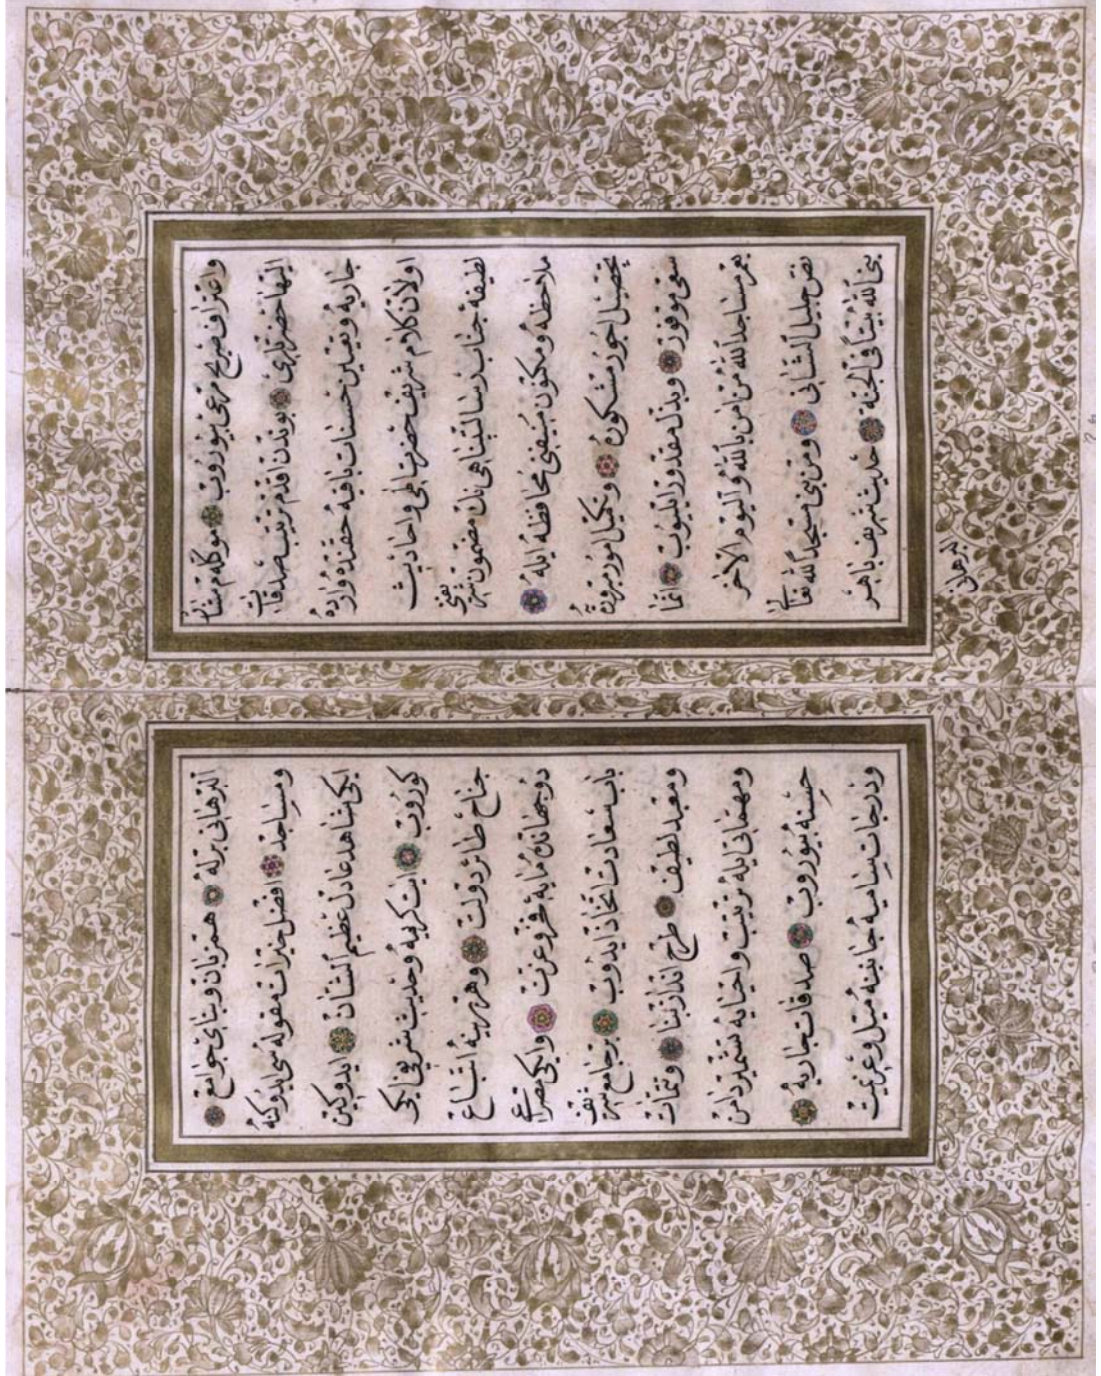 واعتراف صريح مرعى بيوروب موكله
البها حضرتلرى بوندن اقدم ترتيب صدقات
جاريه وتعيين حسنات باقيه حقنده وارده
اولان كلام شريف حضرت الهى واحاديث
لطيفه جناب رسالتپناهى نك مضمون شريفنى
ملاحظه ومكنون منيفنى محافظه ايله
تحصيل اجور مشكوره وتكميل امور مبروره
سعى موفور وبذل مقدور ايليوب انما
يعمر مساجد الله من امن بالله واليوم الاخر
نص جليل الشانى ومن بنى مسجدا لله تعالى
بنى الله بيتا فى الجنة حديث شريف باهر
البرهانى
البرهانى برله همزبان وبناى جوامع
ومساجد افضل خيرات مقوله سى ايدوكنه
ايكى شاهد عادل عظيم الشان ايدوكين
كوروب ايت كريمه وحديث شريفى ايكى
جناح طائر دولت وهر برينه اتباع
دوجهانك مايه فخر وعزت وايكى مصراعى
باب سعادت اتخاذ ايدوب بر جامع شريف
ومعبد لطيف طرح انداز بنا وتتمات
ومهماتى ايله ترتيب واحيايه تشمير دامن
حسنه بيوروب صدقات جاريه
ودرجات ساميه جانبنه ميل وعزيمت